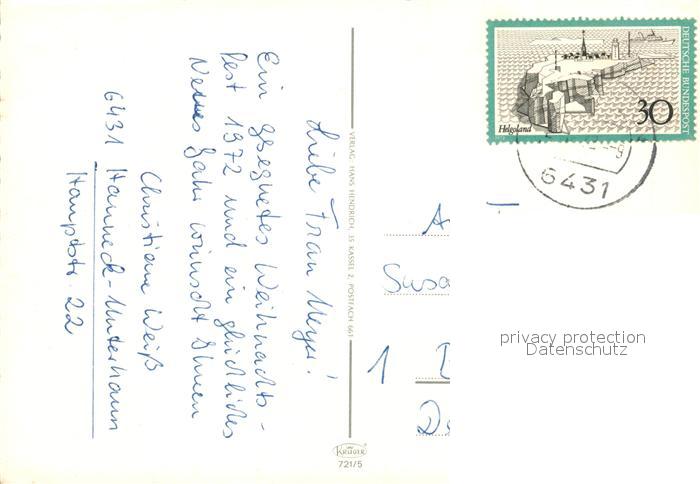 Liebe Frau Meyer!
Ein gesegnetes Weihnachts-
fest 1972 und ein glückliches
Neues Jahr wünscht Ihnen
Christiane Weiß
6431 Hauneck-Unterhaun
Hauptstr. 22
VERLAG HANS HENDRICH, 35 KASSEL 2, POSTFACH 661
KRÜGER
721/5
DEUTSCHE BUNDESPOST
Helgoland
30
6431
A
Susa
1
privacy protection
Datenschutz